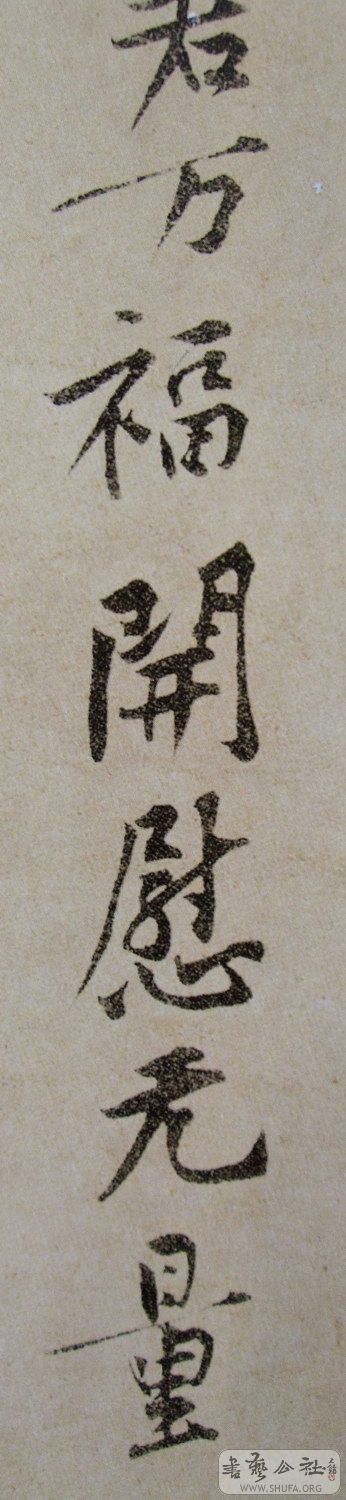 万福開慰无量
書藝公社
WWW.SHUFA.ORG